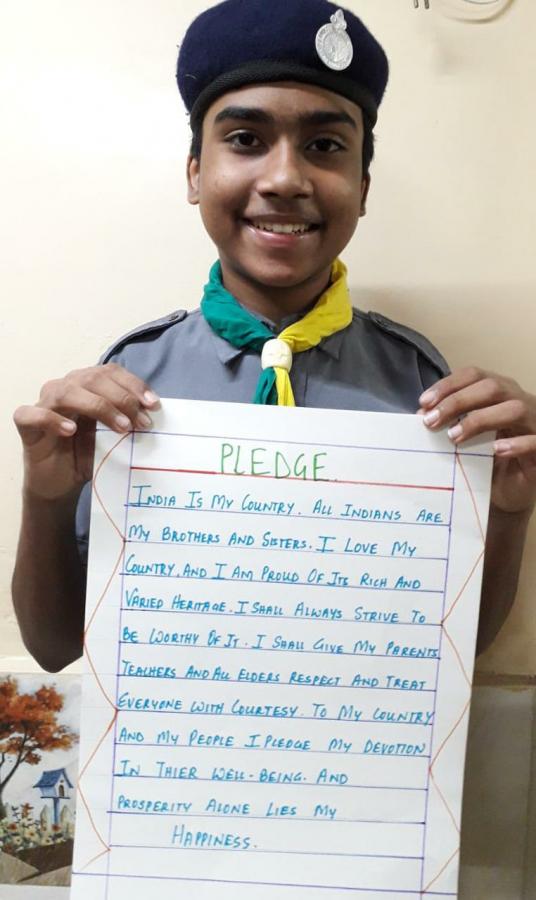 PLEDGE.
INDIA IS MY COUNTRY. ALL INDIANS ARE
MY BROTHERS AND SISTERS. I LOVE MY
COUNTRY, AND I AM PROUD OF ITS RICH AND
VARIED HERITAGE. I SHALL ALWAYS STRIVE TO
BE WORTHY OF IT. I SHALL GIVE MY PARENTS,
TEACHERS AND ALL ELDERS RESPECT AND TREAT
EVERYONE WITH COURTESY. TO MY COUNTRY
AND MY PEOPLE I PLEDGE MY DEVOTION
IN THIER WELL-BEING. AND
PROSPERITY ALONE LIES MY
HAPPINESS.